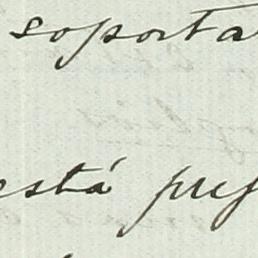 soporta
está puf